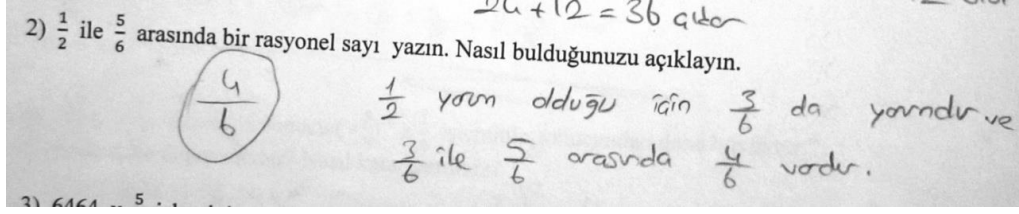 24 + 12 = 36 eder
2) 1/2 ile 5/6 arasında bir rasyonel sayı yazın. Nasıl bulduğunuzu açıklayın.
4/6
1/2 yarım olduğu için 3/6 da yarımdır ve
3/6 ile 5/6 arasında 4/6 vardır.
3) 6464